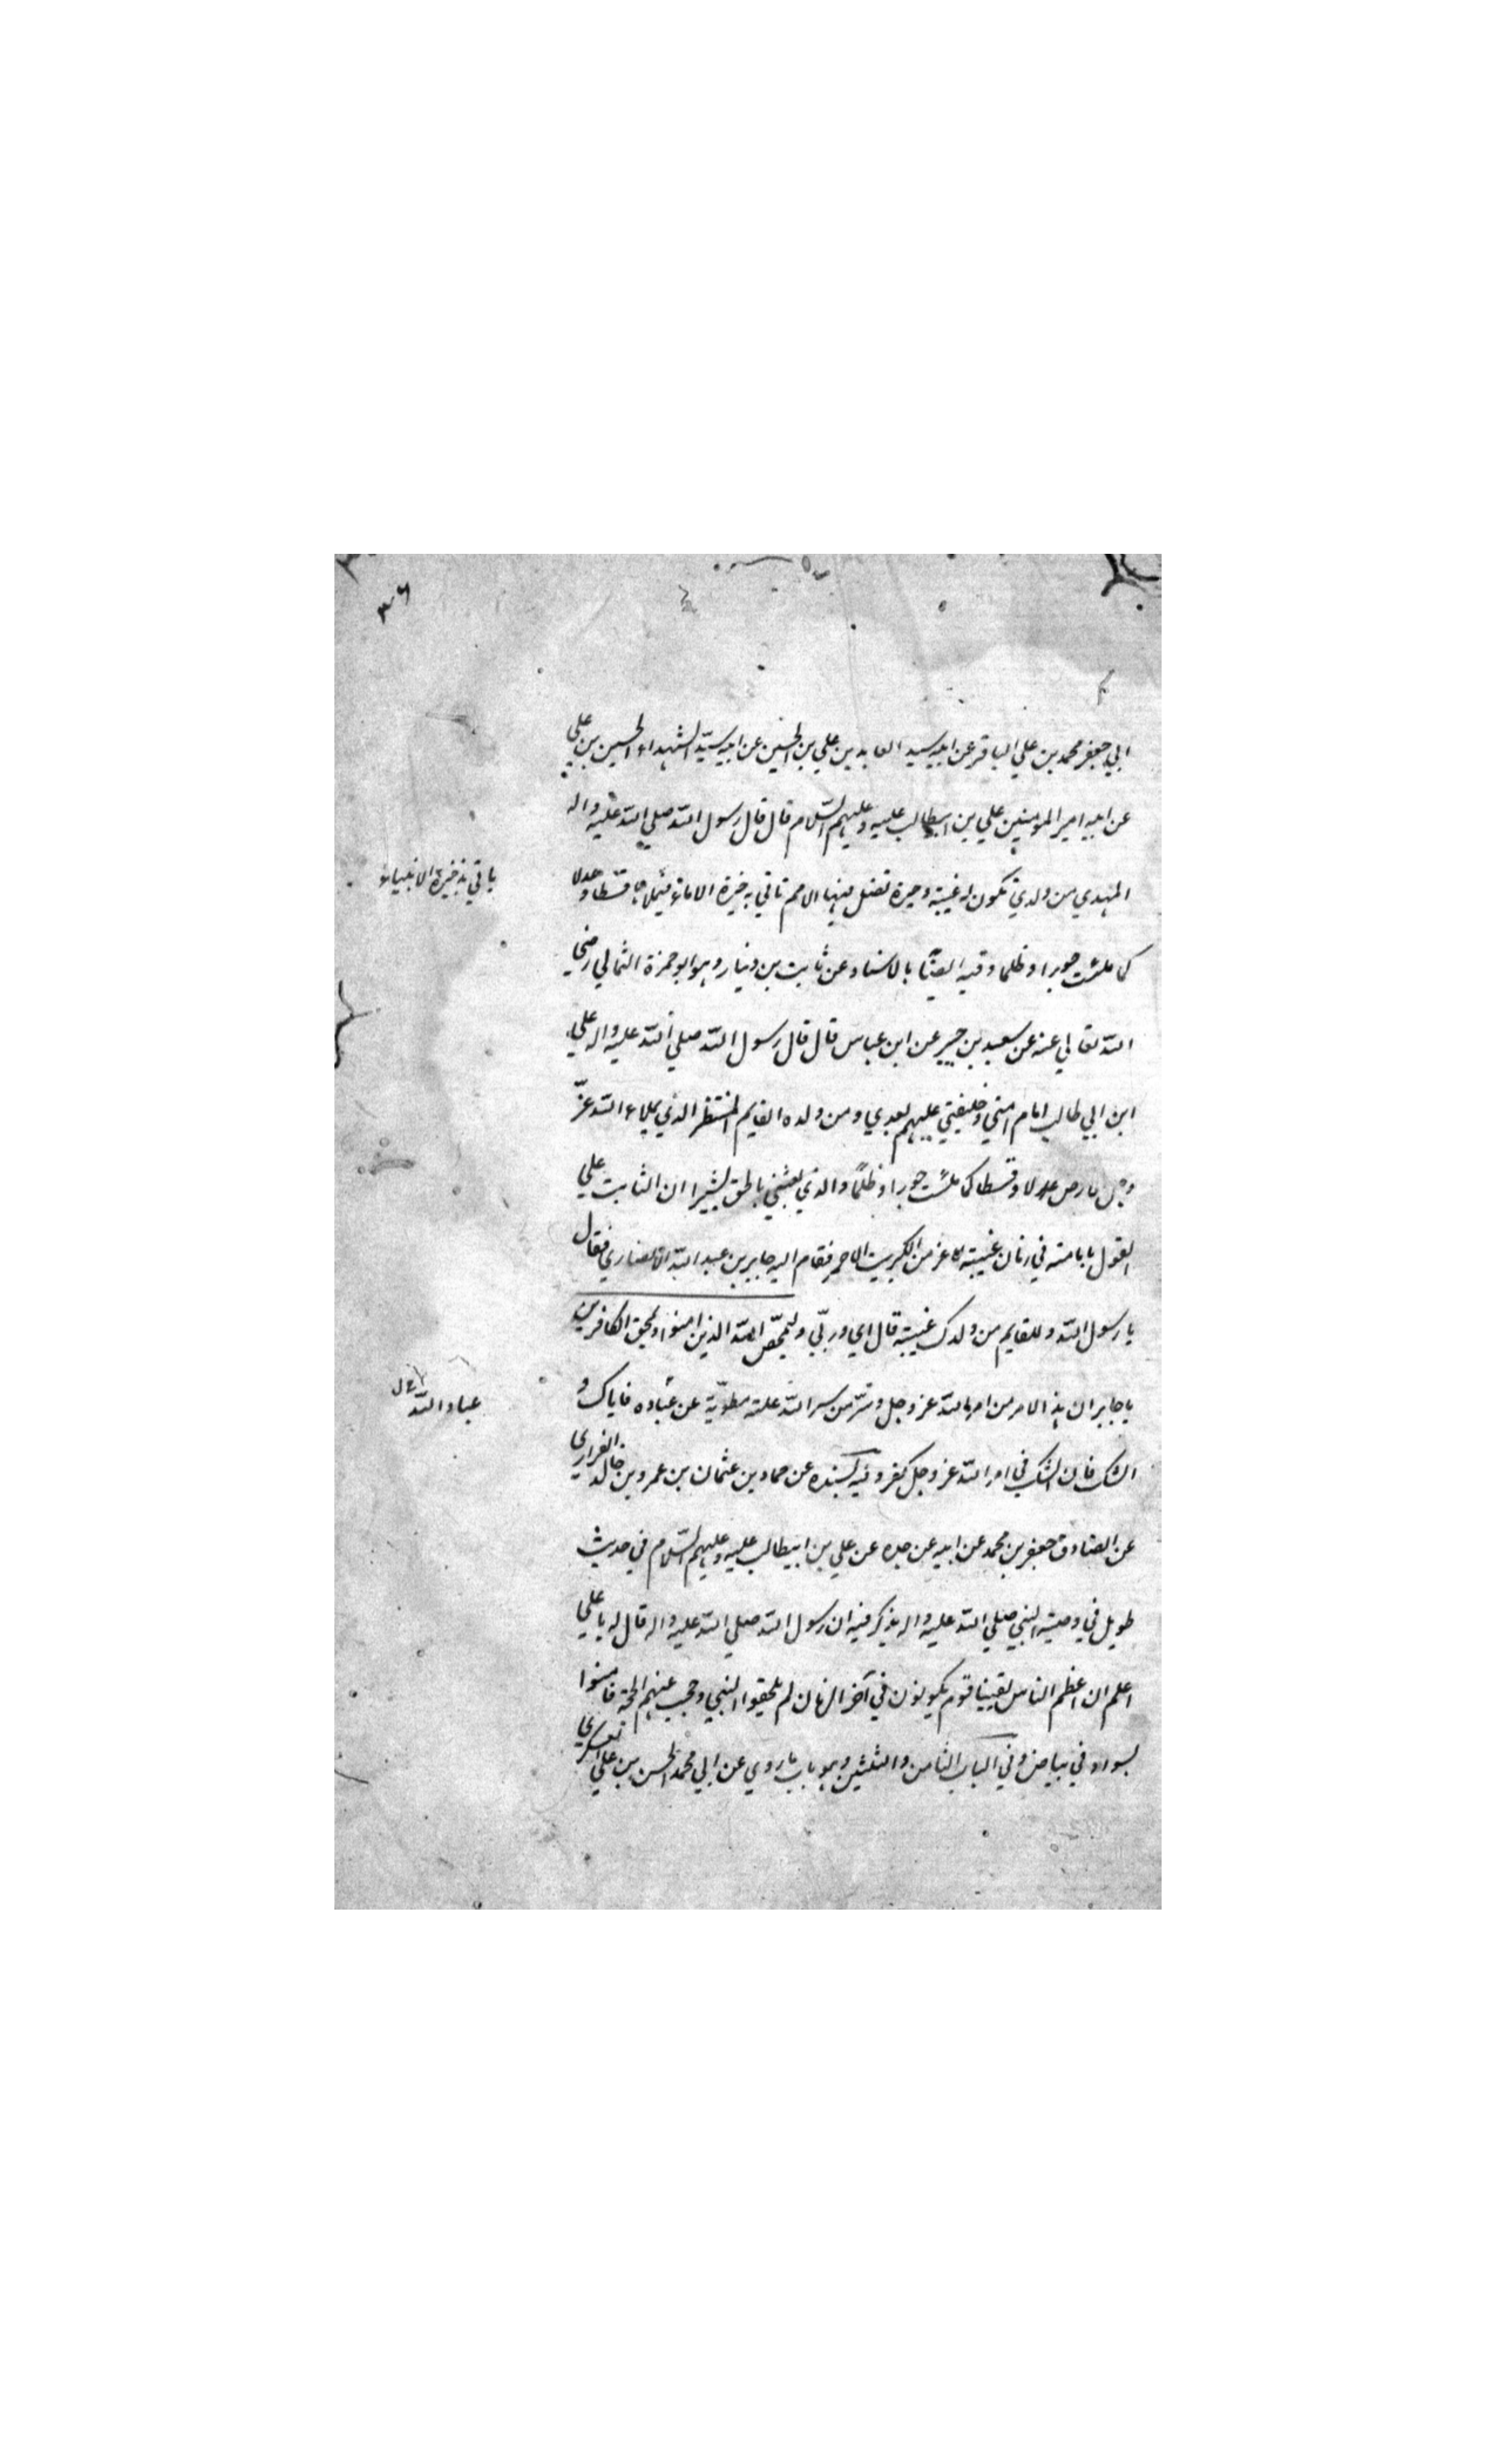 ابي جعفر محمد بن علي الباقر عن ابيه سيد العابدين علي بن الحسين عن ابيه سيّد الشهداء الحسين بن علي
عن ابيه امير المومنين علي بن ابيطالب عليه وعليهم السّلام قال قال رسول الله صلي الله عليه واله
المهدي من ولدي تكون له غيبة وحيرة تضل فيها الامم تاتي به خيرة الاماء فيملاءها قسطا وعدلا
ياتي بذخيرة الانبياء
كما ملئت جورا وظلما وفيه ايضًا بالاسناد عن ثابت بن دينار وهو ابو حمزة الثمالي رضي
الله تعالي عنه عن سعيد بن جبير عن ابن عباس قال قال رسول الله صلي الله عليه واله علي
ابن ابي طالب امام امتي وخليفتي عليهم بعدي ومن ولده القايم المنتظر الذي يملاء الله عزّ
وجل الارض عدلا وقسطا كما ملئت جورا وظلمًا والذي بعثني بالحق بشيرا ان الثابت علي
القول بامامته في زمان غيبته لاعز من الكبريت الاحمر فقام اليه جابر بن عبد الله الانصاري فقال
يا رسول الله وللقايم من ولدك غيبته قال اي وربّي وليمحّص الله الذين امنوا ويمحق الكافرين
يا جابر ان هذ الامر من امر الله عز وجل وسرّ من سر الله علته مطويّة عن عباده فاياك و
عباد الله
الشك فان الشك في امر الله عز وجل كفر وفيه بسنده عن حماد بن عثمان بن عمرو بن خالد
عن الصادق جعفر بن محمد عن ابيه عن جده عن علي بن ابيطالب عليه وعليهم السّلام في حديث
طويل في وصية النبي صلي الله عليه واله يذكر فيه ان رسول الله صلي الله عليه واله قال له يا علي
اعلم ان اعظم الناس يقينا قوم يكونون في آخر الزمان لم يلحقوا النبي وحجب عنهم الحجة فامنوا
بسواد في بياض وفي الباب الثامن والثلثين وهو باب ما روي عن ابي محمد الحسن بن علي العسكري